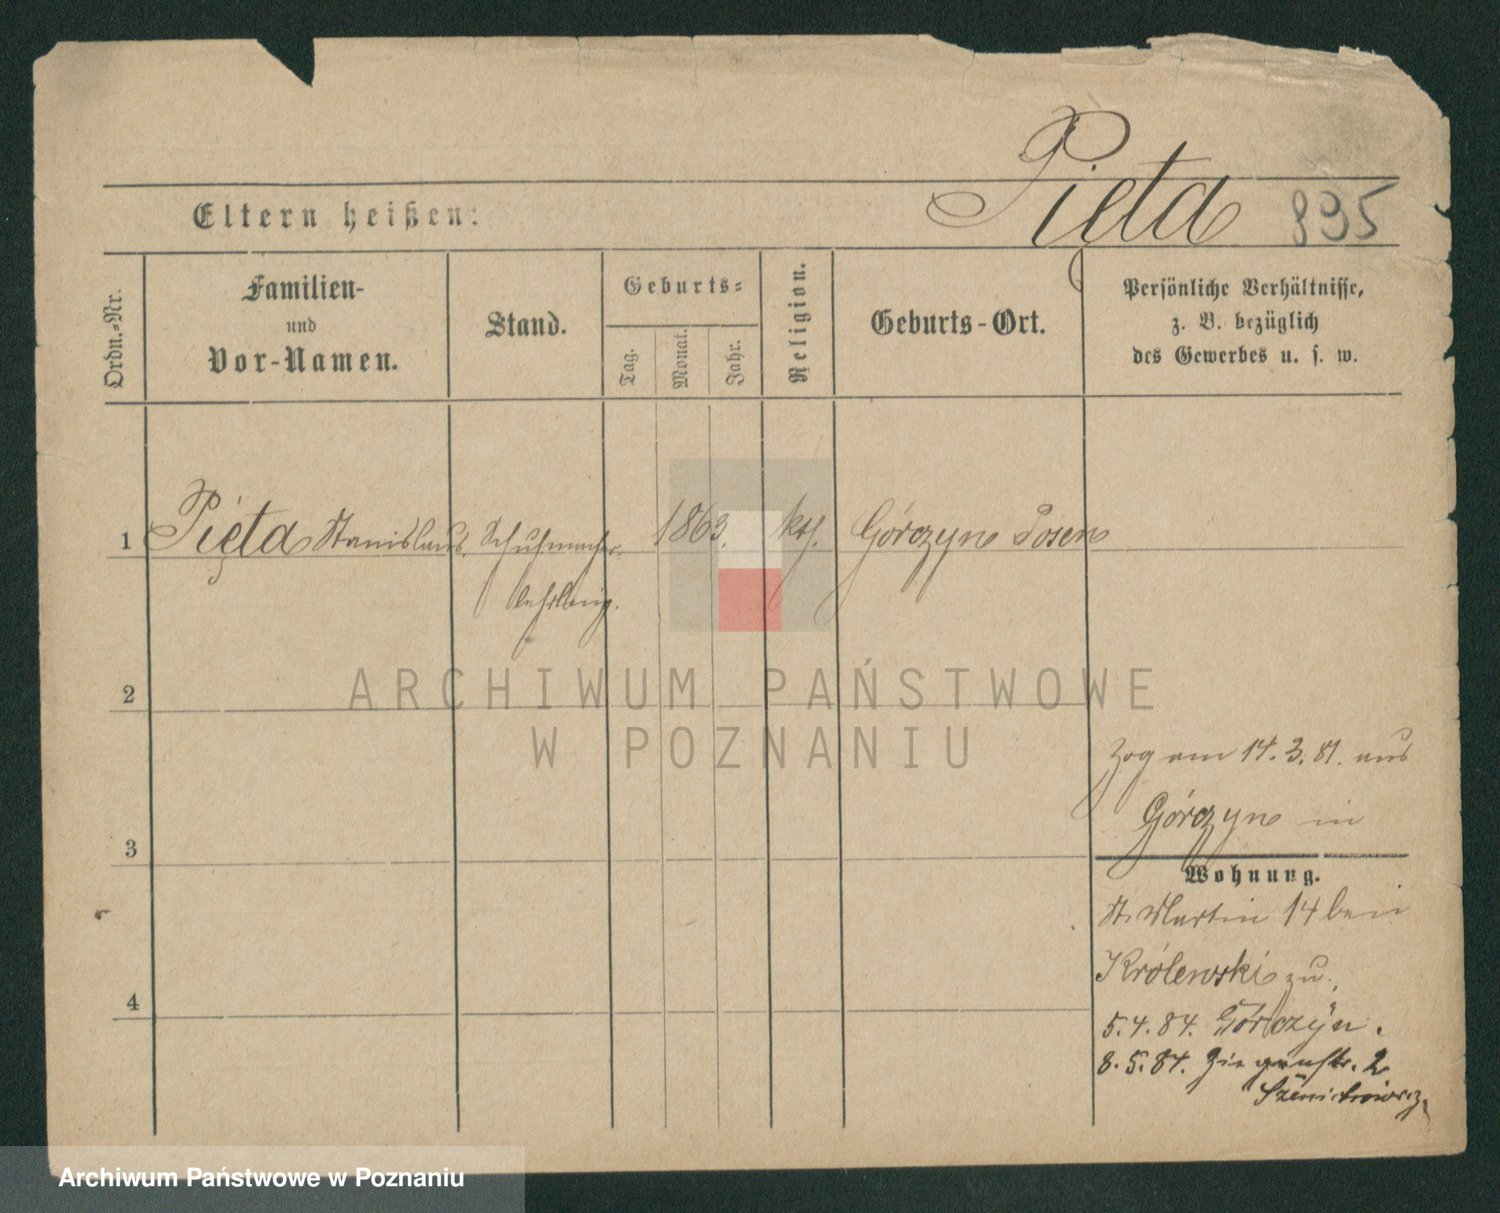 Pięta 895
Eltern heißen:
Ordn.-Nr.
Familien-
und
Vor-Namen.
Stand.
Geburts-
Tag.
Monat.
Jahr.
Religion.
Geburts-Ort.
Persönliche Verhältnisse,
z. B. bezüglich
des Gewerbes u. s. w.
1 Pięta Stanislaus. Schuhmacher- 1863. kth. Górczyn Posen
lehrling.
2
ARCHIWUM PAŃSTWOWE
W POZNANIU
Zog am 14.3.81. aus
Górczyn in
3
Wohnung.
St. Martin 14 bei
Królewski zu.
4
5.4.84. Górczyn.
8.5.84. 2
Archiwum Państwowe w Poznaniu